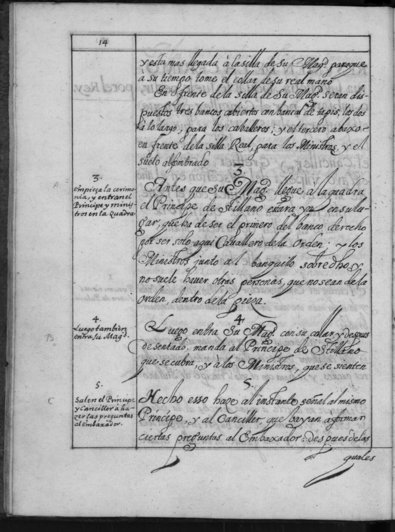 14
y esta mas llegada, à la silla de su Mag.ᵈ paraque
a su tiempo, tome el collar de su real mano
En el frente de la silla de Su Mag.ᵈ seran dis-
puestos tres bancos, cubiertos
a lo largo; para los cavalleros; y el tercero abaxo
en frente de la silla Real, para los Ministros, y el
suelo alfombrado
3.
empieça la cerimo-
nia, y entran el
Principe y minis-
tros en la Quadra.
3
Antes que su Mag.ᵈ llegue à la quadra
el Principe de Stillano entra ya en su lu-
gar, que ha de ser el primero del banco derecho
por ser solo aquel Cavallero de la Orden; y los
Ministros junto al banquito sobredho, y
no suele haver otras personas, que no sean de la
orden, dentro de la pieça.
4.
Luego tambien
entra su Mag.ᵈ
4
Luego entra Su Mag.ᵈ con su collar, y despues
de sentado, manda al Principe de Stillano
que se cubra, y a los Ministros, que se sienten
5.
Salen el Principe
y Canciller à ha-
zer las preguntas
al embaxador.
5
Hecho esso haze al instante señal al mismo
Principe, y al Canciller, que vayan a formar
ciertas preguntas al Embaxador: despues de las
quales